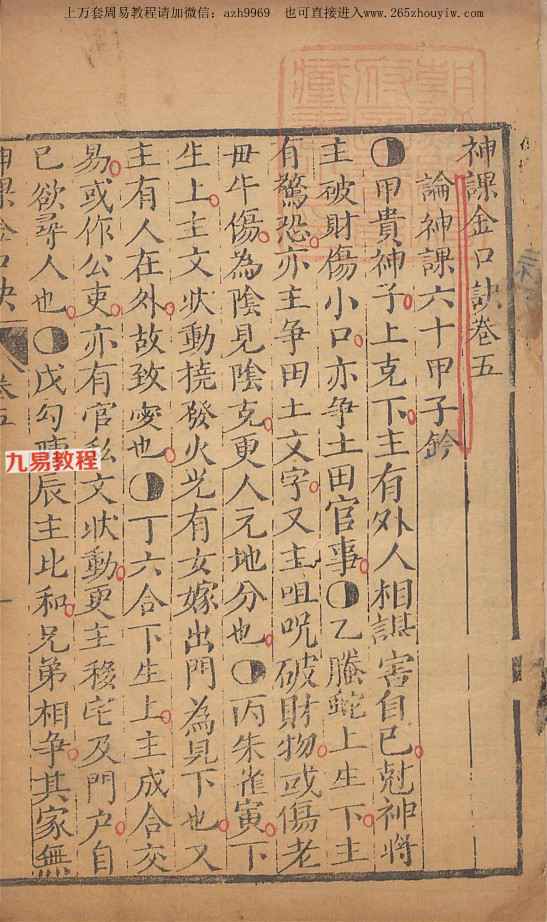 上万套周易教程请加微信：azh9969 也可直接进入www.265zhouyiw.com
神課金口訣卷五
論神課六十甲子鈐
甲貴神子上克下主有外人相謀害自己尅神將
主破財傷小口亦爭土田官事乙螣蛇上生下主
有驚恐亦主爭田土文字又主咀呪破財物或傷老
毌牛傷為陰見陰克更人元地分也丙朱雀寅下
生上主文狀動撓發火光有女嫁出門為見下也又
主有人在外故致变也丁六合下生上主成合交
易或作公吏亦有官私文狀動更主移宅及門户自
已欲尋人也戊勾陳辰主比和兄弟相爭其家無
九易教程
神課金口訣
卷五